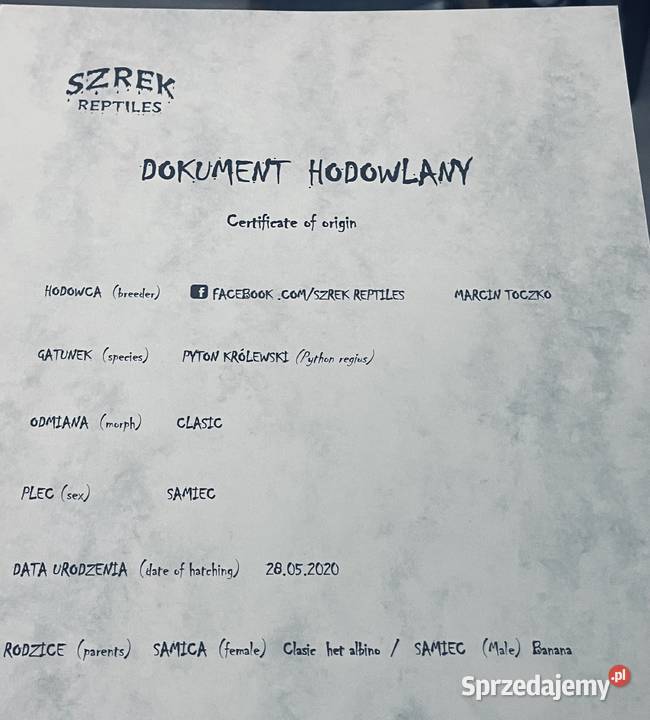 SZREK
REPTILES
DOKUMENT HODOWLANY
Certificate of origin
HODOWCA (breeder) FACEBOOK .COM/SZREK REPTILES MARCIN TOCZKO
GATUNEK (species) PYTON KRÓLEWSKI (Python regius)
ODMIANA (morph) CLASIC
PLEC (sex) SAMIEC
DATA URODZENIA (date of hatching) 28.05.2020
RODZICE (parents) SAMICA (female) Clasic het albino / SAMIEC (Male) Banana
Sprzedajemy.pl